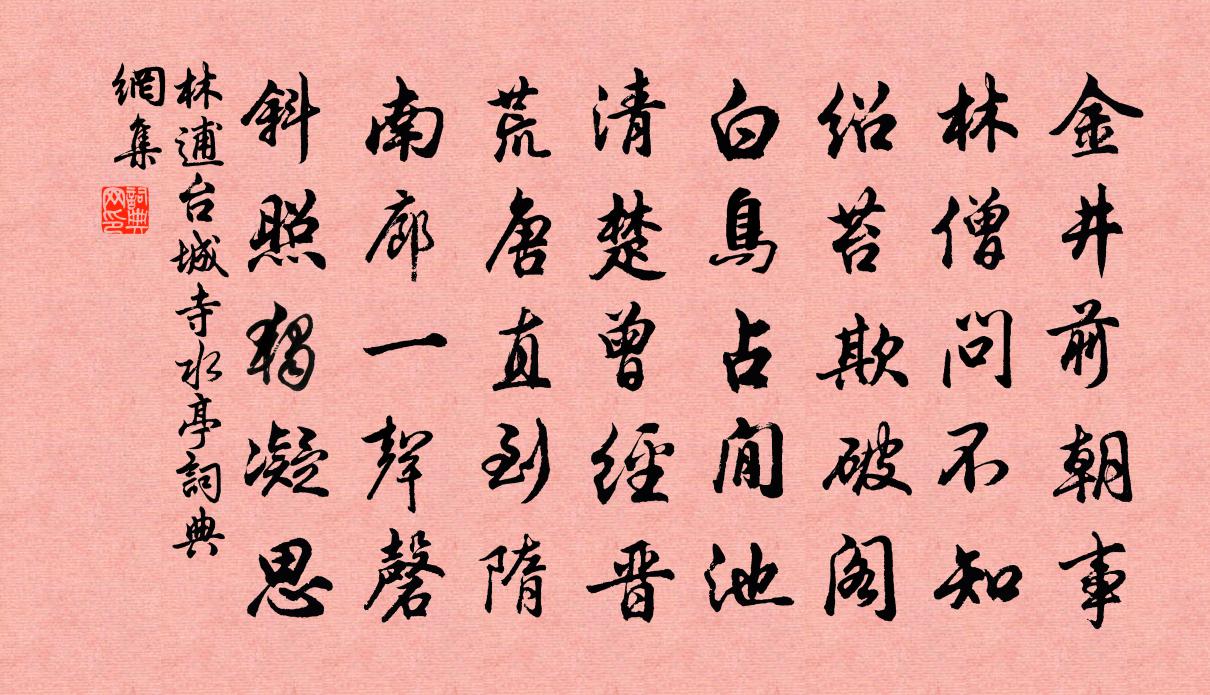 金井前朝事
林僧問不知
绍苔欺破阁
白鳥占閒池
清楚曾經晋
荒唐直到隋
南廊一聲磬
斜照獨凝思
林逋台城寺水亭詞典
網集
詞典
网印